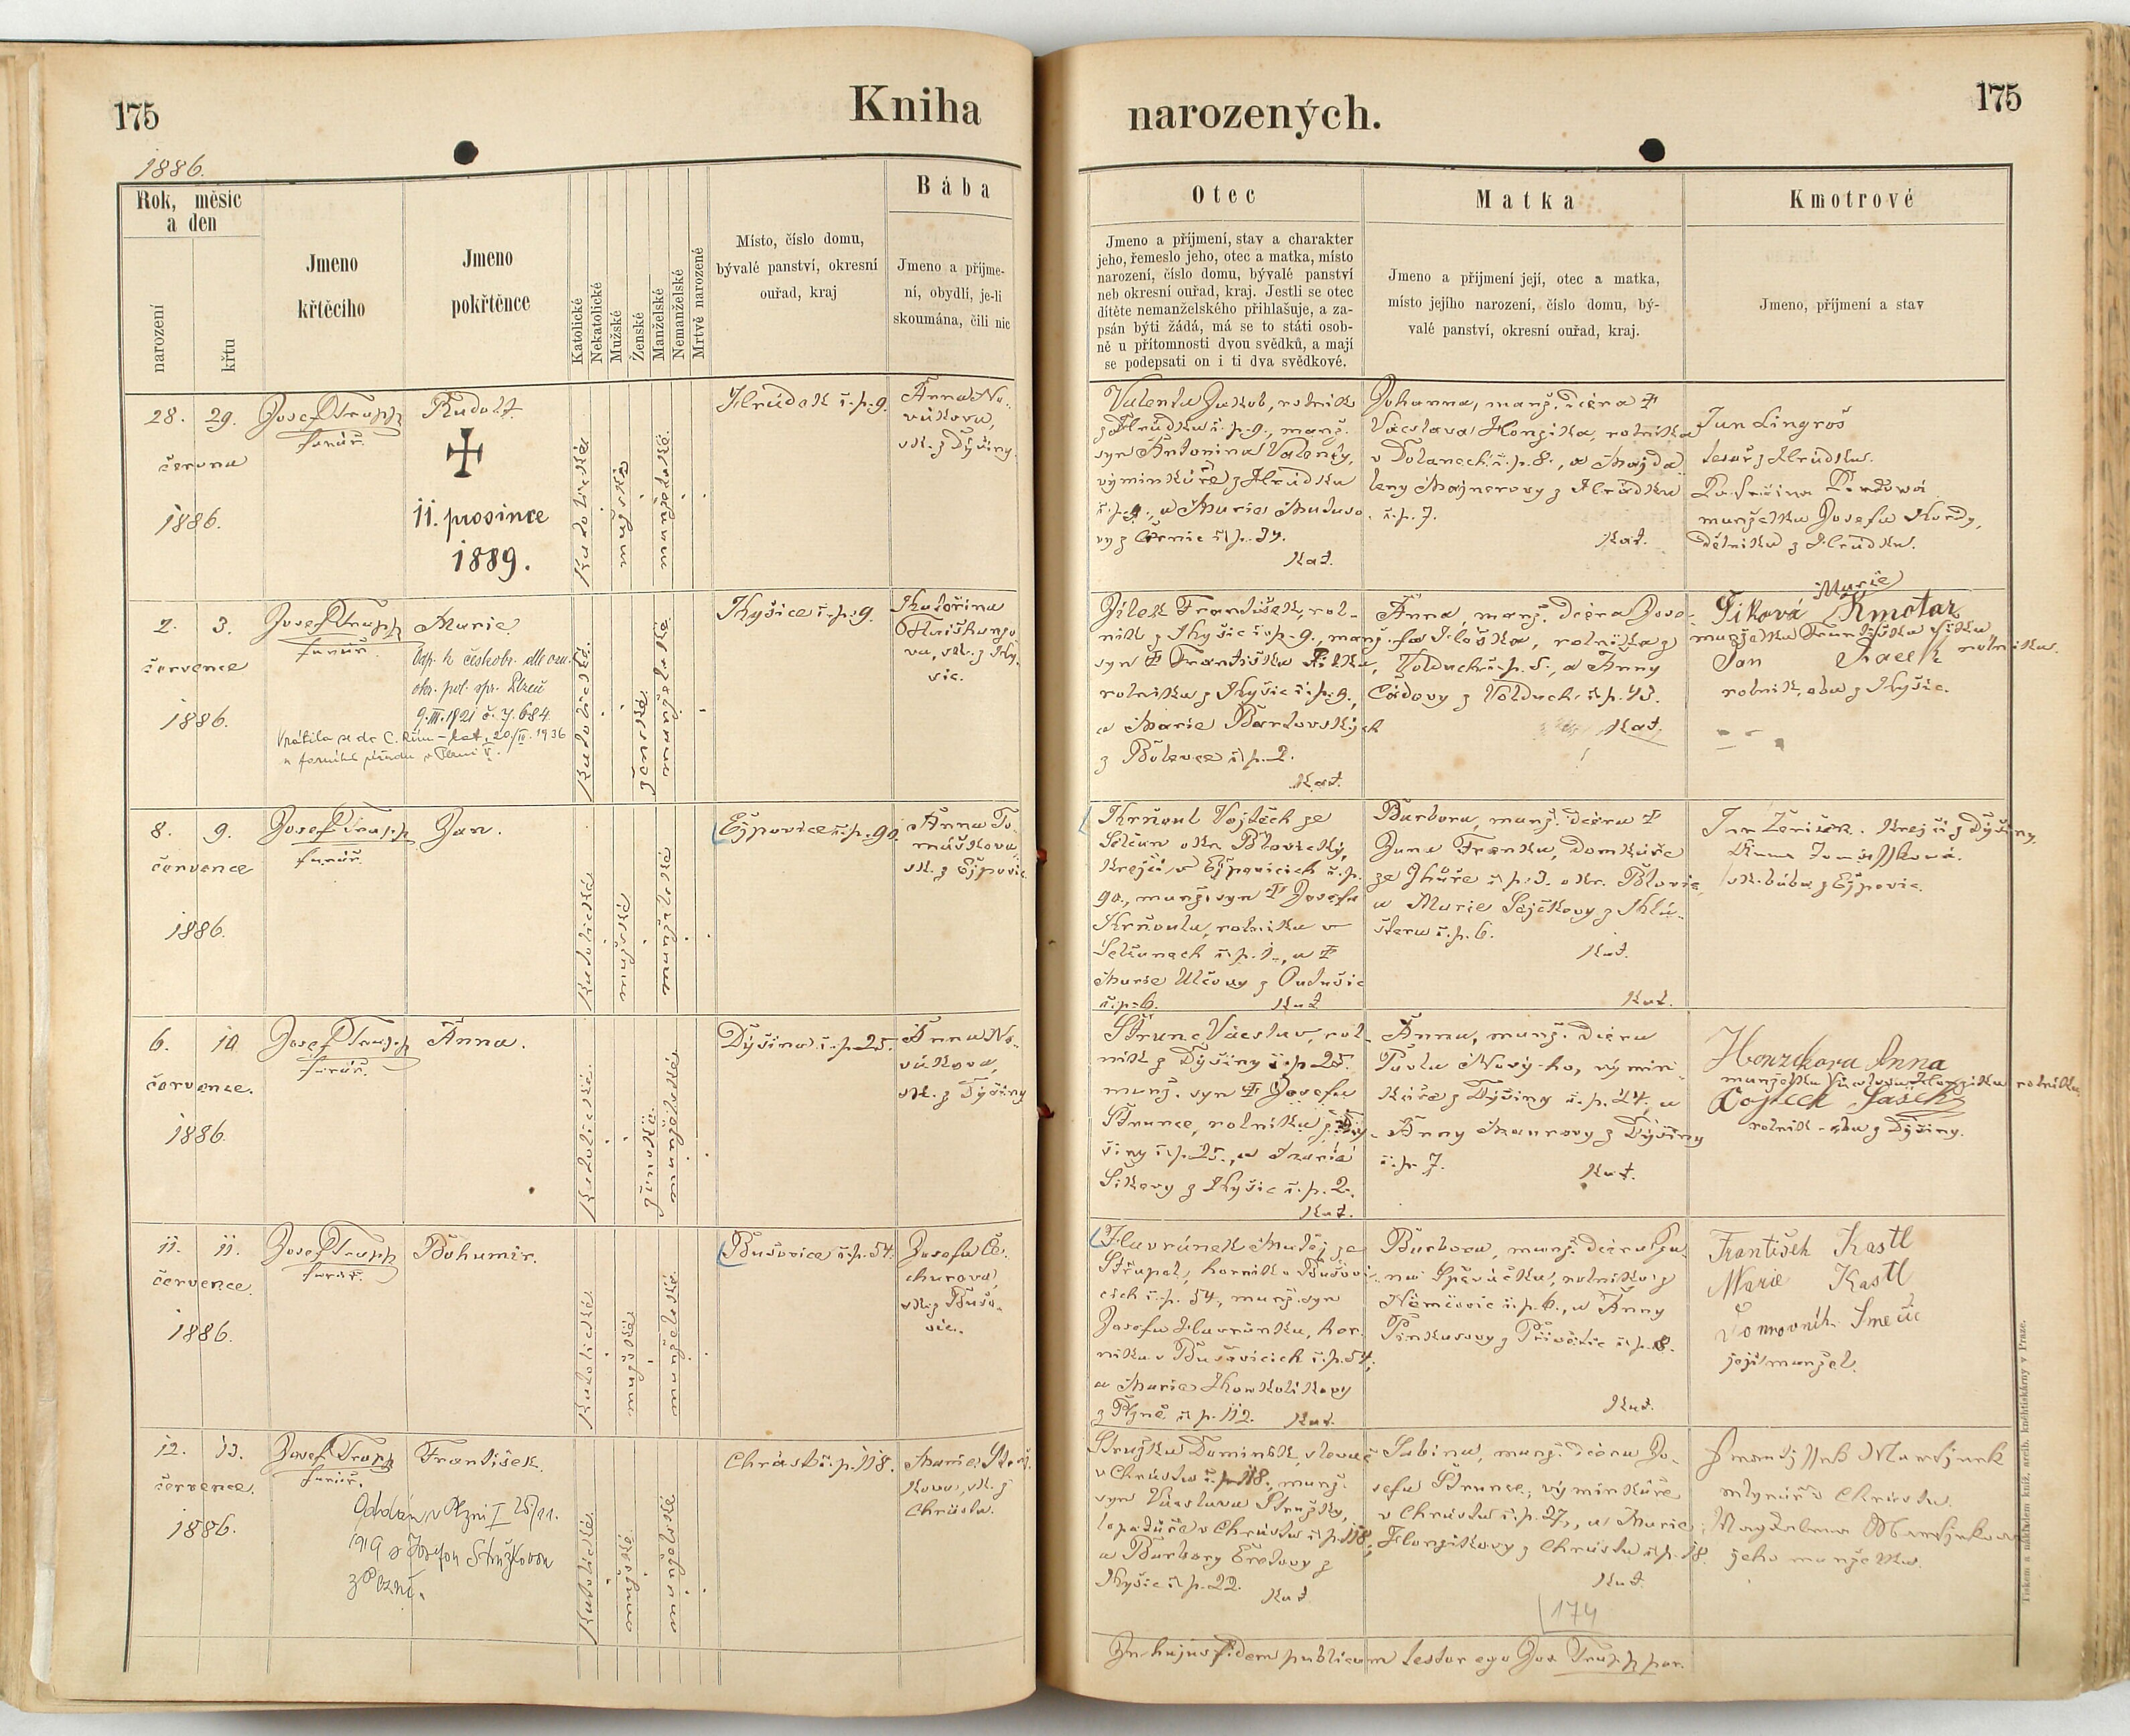 175
Kniha
narozených.
175
1886.
Rok, měsíc
a den
narození
křtu
Jmeno
křtěcího
Jmeno
pokřtěnce
Katolické
Nekatolické
Mužské
Ženské
Manželské
Nemanželské
Mrtvě narozené
Místo, číslo domu,
bývalé panství, okresní
ouřad, kraj
Bába
Jmeno a příjme-
ní, obydlí, je-li
skoumána, čili nic
Otec
Jmeno a příjmení, stav a charakter
jeho, řemeslo jeho, otec a matka, místo
narození, číslo domu, bývalé panství
neb okresní ouřad, kraj. Jestli se otec
dítěte nemanželského přihlašuje, a za-
psán býti žádá, má se to státi osob-
ně u přítomnosti dvou svědků, a mají
se podepsati on i ti dva svědkové.
Matka
Jmeno a příjmení její, otec a matka,
místo jejího narození, číslo domu, bý-
valé panství, okresní ouřad, kraj.
Kmotrové
Jmeno, příjmení a stav
28. 29.
června
1886.
Josef Trapp
farář.
Rudolf
11. prosince
1889.
katolické
mužské
manželské
Hrádek č. p. 9.
Anna No-
váková,
zk. z Dýšiny.
Valenta Jakob, rolník
z Hrádku č. p. 9., manž.
syn Antonina Valenty,
výminkáře z Hrádku
č. p. 9., a Marie
č. p. 34.
Kat.
Johanna, manž. dcera †
Václava Honzíka, rolníka
v Dolanech č. p. 8., a Majda-
leny Majnerovy z Hrádku
č. p. 7.
Kat.
Jan Lingroš
tesař z Hrádku.
Kateřina
manželka Josefa
dělníka z Hrádku.
2. 3.
července
1886.
Josef Trapp
farář.
Marie
Odp. k českobr. dle ozn.
okr. pol. spr. Plzeň
9. III. 1921 č. j. 684
Vrátila se do C. řím-kat. 20/IV. 1936
u farního úřadu v Plzni
katolické
ženské
manželské
Kyšice č. p. 9.
Kateřina
va, zk. z Ky-
šic.
Jílek František, rol-
ník z Kyšic č. p. 9., manž.
syn † Františka Jílka,
rolníka z Kyšic č. p. 9.,
a Marie Bartovských
z Bolevce č. p. 2.
Kat.
Anna, manž. dcera Jose-
fa Floška, rolníka z
Volduch č. p. 5., a Anny
Cádovy z Volduch č. p. 43.
Kat.
Marie
Šiková Kmotar
manželka Františka Šíka
rolníka.
Jan
rolník, oba z Kyšic.
8. 9.
července
1886.
Josef Trapp
farář.
Jan.
katolické
mužské
manželské
Ejpovice č. p. 90.
Anna To-
mášková
zk. z Ejpovic
Krňoul Vojtěch ze
Sečan okr. Blovický,
krejčí v Ejpovicích č. p.
90., manž. syn † Josefa
Krňoula, rolníka v
č. p. 1., a †
Marie Ulčovy z
č. p. 6. Kat
Barbora, manž. dcera †
Jana Franka, domkáře
ze Zhůře č. p. 3. okr. Blovic,
a Marie Lejčkovy z Klá-
štera č. p. 6.
Kat.
Kat.
Jan krejčí z Dýšiny.
Anna Tomášková.
zk. bába z Ejpovic.
6. 10
července.
1886.
Josef Trapp
farář.
Anna.
katolické
ženské
manželské
Dýšina č. p. 25.
Anna No-
váková,
zk. z Dýšiny
Štrunc Václav, rol-
ník z Dýšiny č. p. 25.
manž. syn † Josefa
Štrunce, rolníka z Dý-
šiny č. p. 25., a Marie
Šikovy z Kyšic č. p. 2.
Kat.
Anna, manž. dcera
Pavla Nový-ho, výmin-
káře z Dýšiny č. p. 24, a
Anny Maurovy z Dýšiny
č. p. 7.
Kat.
Honzikova Anna
manželka Václava Honzíka rolníka
Vojtěch Šašek
rolník - oba z Dýšiny.
11. 11.
července.
1886.
Josef Trapp
farář.
Bohumír.
katolické
mužské
manželské
Bušovice č. p. 54.
Josefa Če-
churová,
zk. z Bušo-
vic.
Havránek Matěj ze
Střapol, horník v Bušovi-
cích č. p. 54, manž. syn
Josefa Havránka, hor-
níka v Bušovicích č. p. 54,
a Marie
z Plzně č. p. 112. Kat.
Barbora, manž. dcera Ja-
na Spěváčka, rolníka z
Němčovic č. p. 6., a Anny
Pinkasovy z Přívětic č. p. 8.
Kat.
František Kastl
Marie Kastl
jejímanžel.
12. 13.
července.
1886.
Josef Trapp
farář.
František.
Oddán v Plzni I 25/11.
1919 s Josefou Stružkovou
z Plzni.
katolické
mužské
manželské
Chrást č. p. 118.
Marie
ková, zk. z
Chrástu.
Stružka Dominik,
v Chrástu č. p. 118., manž.
syn Václava Stružky,
lopatáře v Chrástu č. p. 118,
a Barbory Eretovy z
Kyšic č. p. 22. Kat
Sabina, manž. dcera Jo-
sefa Štrunce, výminkáře
v Chrástu č. p. 27., a Marie
Honzíkovy z Chrástu č. p. 18.
Kat.
František Martínek
mlynář v Chrástu.
Magdalena Martínkova
jeho manželka.
174
In hujus fidem publicam testor ego Jos Trapp par.
Tiskem a nákladem kníž. arcib. knihtiskárny v Praze.